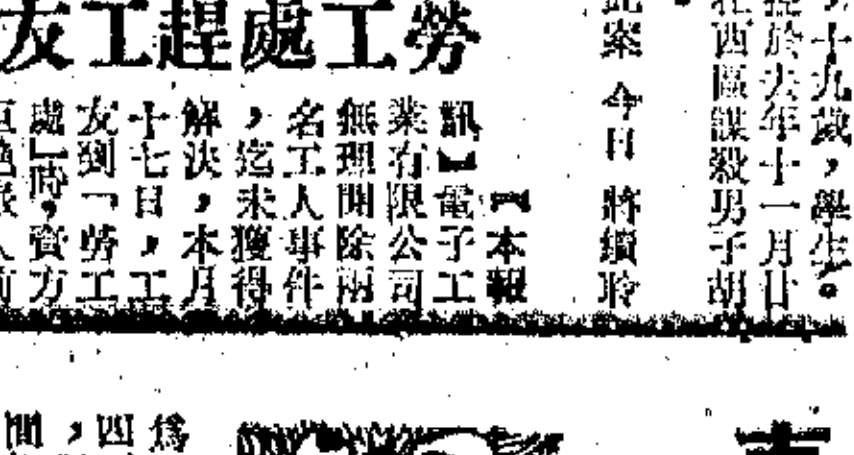 十九歲，學生。
於去年十一月廿
西區謀殺男子胡
案今日將續聆
勞工處趕工友
【本報
訊】電子工
業有限公司
無理開除兩
名工人事件
，迄未獲得
解決，本月
十七日，工
友到「勞工
處」時，資方
爲
四
，
間